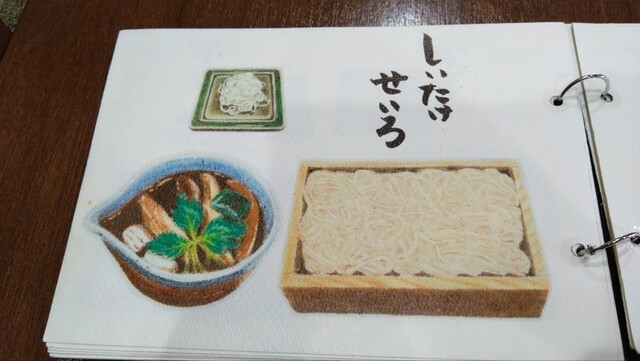 しいたけ
せいろ